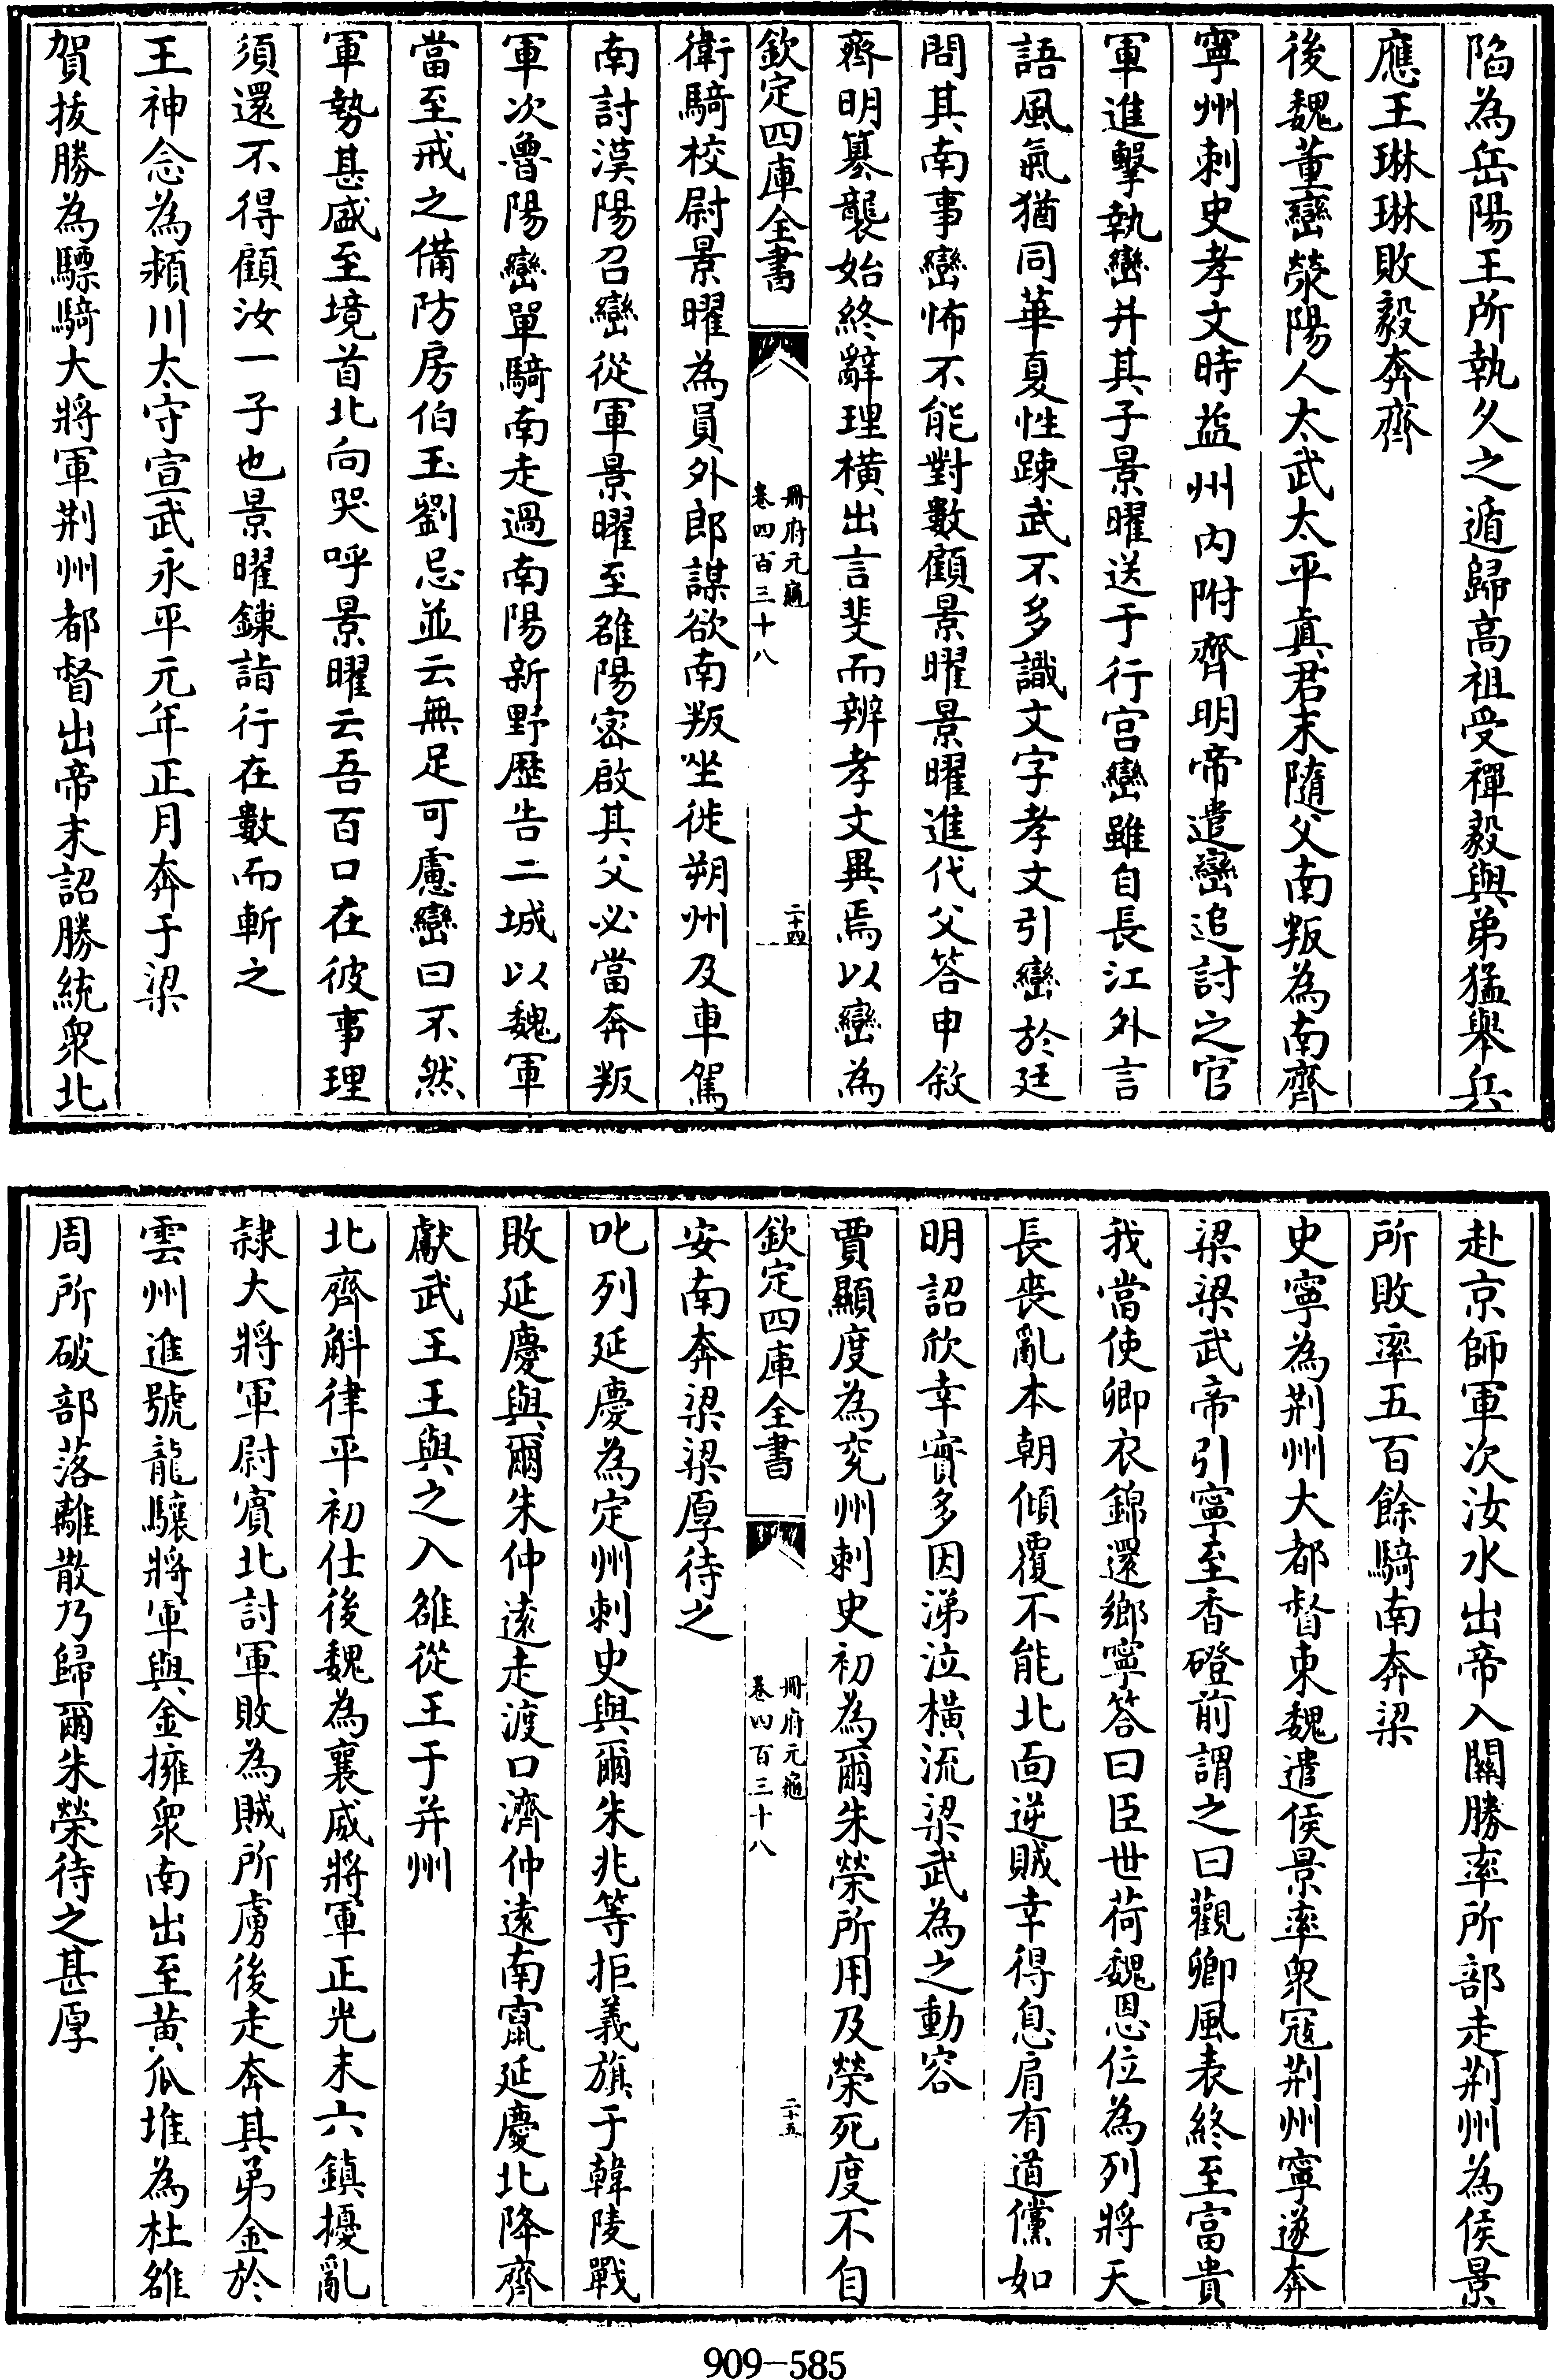 陷為岳陽王所執久之遁歸高祖受禪毅與弟猛舉兵
應王琳琳敗毅奔齊
後魏董巒滎陽人太武太平真君末隨父南叛為南齊
寧州刺史孝文時益州內附齊明帝遣巒追討之官
軍進擊執巒并其子景曜送于行宫巒雖自長江外言
語風氣猶同華夏性踈武不多識文字孝文引巒於廷
問其南事巒怖不能對數顧景曜景曜進代父答申敘
齊明簒襲始終辭理橫出言斐而辨孝文異焉以巒為
欽定四庫全書
冊府元龜
卷四百三十八
二十四
衛騎校尉景曜為員外郎謀欲南叛坐徙朔州及車駕
南討漢陽召巒從軍景曜至雒陽密啟其父必當奔叛
軍次魯陽巒單騎南走過南陽新野歷告二城以魏軍
當至戒之備防房伯玉劉忌並云無足可慮巒曰不然
軍勢甚盛至境首北向哭呼景曜云吾百口在彼事理
須還不得顧汝一子也景曜鏁詣行在數而斬之
王神念為潁川太守宣武永平元年正月奔于梁
賀拔勝為驃騎大將軍荆州都督出帝末詔勝統衆北
赴京師軍次汝水出帝入關勝率所部走荆州為侯景
所敗率五百餘騎南奔梁
史寧為荆州大都督東魏遣侯景率衆冦荆州寧遂奔
梁梁武帝引寧至香磴前謂之曰觀卿風表終至富貴
我當使卿衣錦還鄉寧答曰臣世荷魏恩位為列將天
長喪亂本朝傾覆不能北面逆賊幸得息肩有道儻如
明詔欣幸實多因涕泣橫流梁武為之動容
賈顯度為兖州刺史初為爾朱榮所用及榮死度不自
欽定四庫全書
冊府元龜
卷四百三十八
二十五
安南奔梁梁厚待之
叱列延慶為定州刺史與爾朱兆等拒義旗于韓陵戰
敗延慶與爾朱仲遠走渡口濟仲遠南竄延慶北降齊
獻武王王與之入雒從王于并州
北齊斛律平初仕後魏為襄威將軍正光末六鎮擾亂
隷大將軍尉賓北討軍敗為賊所虜後走奔其弟金於
雲州進號龍驤將軍與金擁衆南出至黄瓜堆為杜雒
周所破部落離散乃歸爾朱榮待之甚厚
909-585